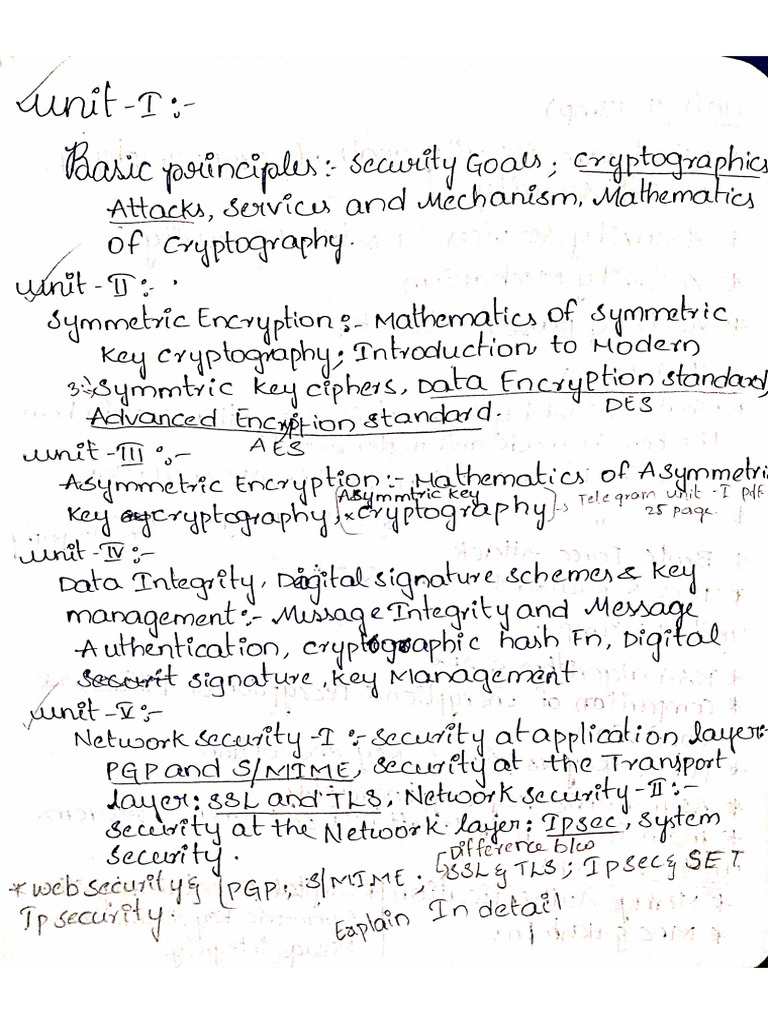 Unit - I :-
Basic principles :- Security Goals; Cryptographics
Attacks, Services and Mechanism, Mathematics
of Cryptography.
Unit - II :-
Symmetric Encryption :- Mathematics of Symmetric
Key Cryptography; Introduction to Modern
3:- Symmtric Key ciphers, Data Encryption Standard,
DES
Advanced Encryption Standard.
AES
Unit - III :-
Asymmetric Encryption :- Mathematics of Asymmetri
Key Cryptography, * Asymmtric key Cryptography } -> Telegram unit - I pdf
25 page.
Unit - IV :-
Data Integrity, Digital signature schemes & Key
management :- Message Integrity and Message
Authentication, cryptographic hash Fn, Digital
Securit Signature, Key Management
Unit - V :-
Network security - I :- Security at application layer:-
PGP and S/MIME, Security at the Transport
layer: SSL and TLS, Network security - II :-
Security at the Network layer: Ipsec, System
Security.
* web security & { PGP; S/MIME; [ Difference b/w SSL & TLS; IPsec & SET
Ip security.
Explain In detail